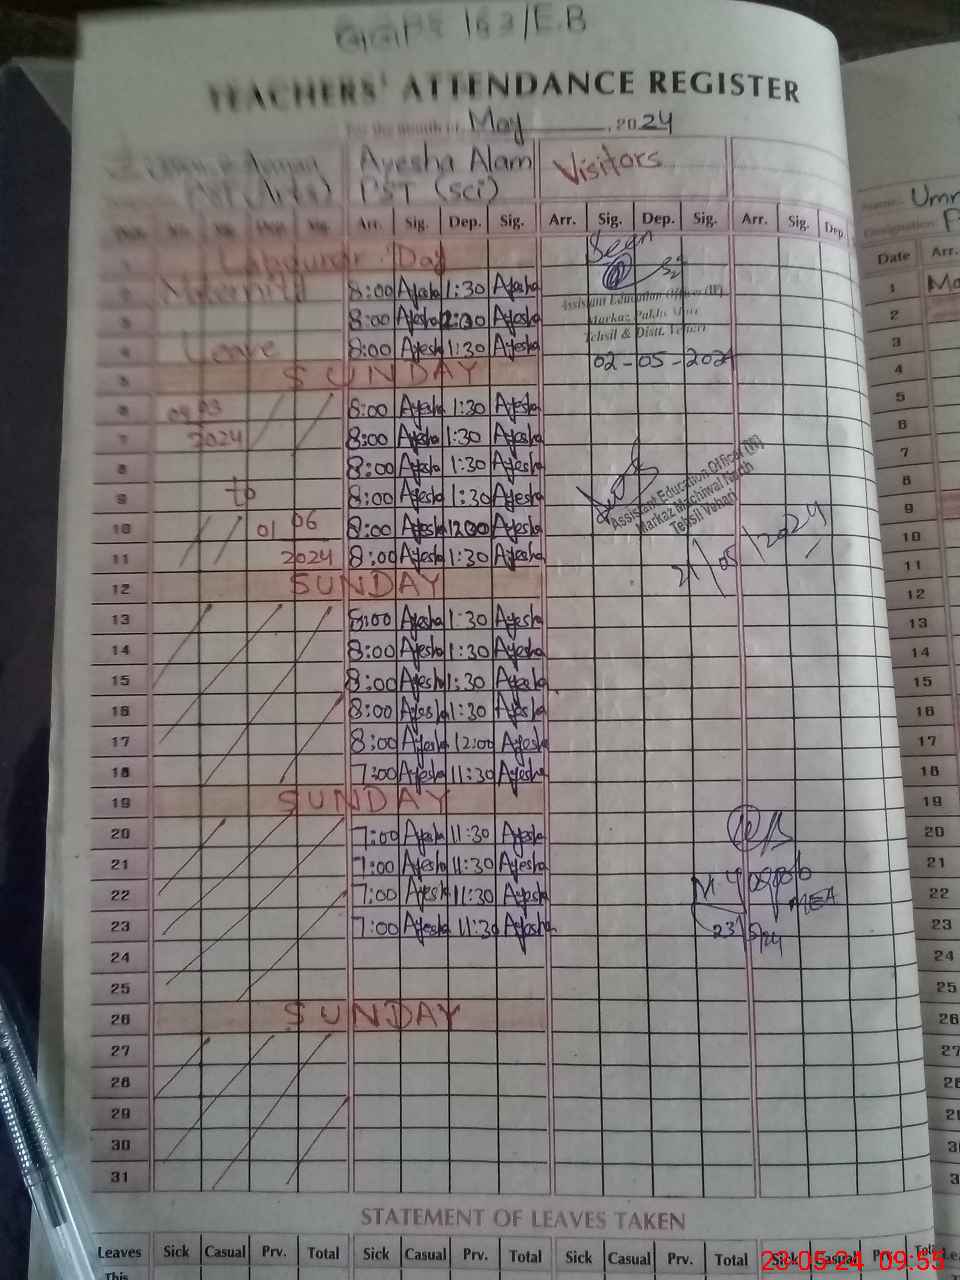 GGPS 163/E.B
TEACHERS' ATTENDANCE REGISTER
For the month of May, 2024
Ayesha Alam Visitors
PST (Arts) PST (sci)
Arr. Sig. Dep. Sig. Arr. Sig. Dep. Sig. Arr. Sig. Dep.
1 Labour Day Seen
2 Maternity 8:00 Ayesha 1:30 Ayesha
Assistant Education Officer (W)
3 8:00 Ayesha 12:30 Ayesha
Tehsil & Distt. Vehari
4 Leave 8:00 Ayesha 1:30 Ayesha 02-05-2024
5 SUNDAY
6 03 8:00 Ayesha 1:30 Ayesha
7 2024 8:00 Ayesha 1:30 Ayesha
8 8:00 Ayesha 1:30 Ayesha
9 to 8:00 Ayesha 1:30 Ayesha
Assistant Education Officer (W)
Markaz Machiwal North
Tehsil Vehari
10 01 06 8:00 Ayesha 12:00 Ayesha
11 2024 8:00 Ayesha 1:30 Ayesha 21/05/2024
12 SUNDAY
13 8:00 Ayesha 1:30 Ayesha
14 8:00 Ayesha 1:30 Ayesha
15 8:00 Ayesha 1:30 Ayesha
16 8:00 Ayesha 1:30 Ayesha
17 8:00 Ayesha 12:00 Ayesha
18 7:00 Ayesha 11:30 Ayesha
19 SUNDAY
20 7:00 Ayesha 11:30 Ayesha
21 7:00 Ayesha 11:30 Ayesha
22 7:00 Ayesha 11:30 Ayesha MEA
23 7:00 Ayesha 11:30 Ayesha 23/5/24
24
25
26 SUNDAY
27
28
29
30
31
STATEMENT OF LEAVES TAKEN
Leaves Sick Casual Prv. Total Sick Casual Prv. Total Sick Casual Prv. Total Sick Casual Prv. Total
This
Name: Umm
Designation: P
Date Arr.
1 Ma
2
3
4
5
6
7
8
9
10
11
12
13
14
15
16
17
18
19
20
21
22
23
24
25
26
27
28
29
30
3
23-05-24 09:55